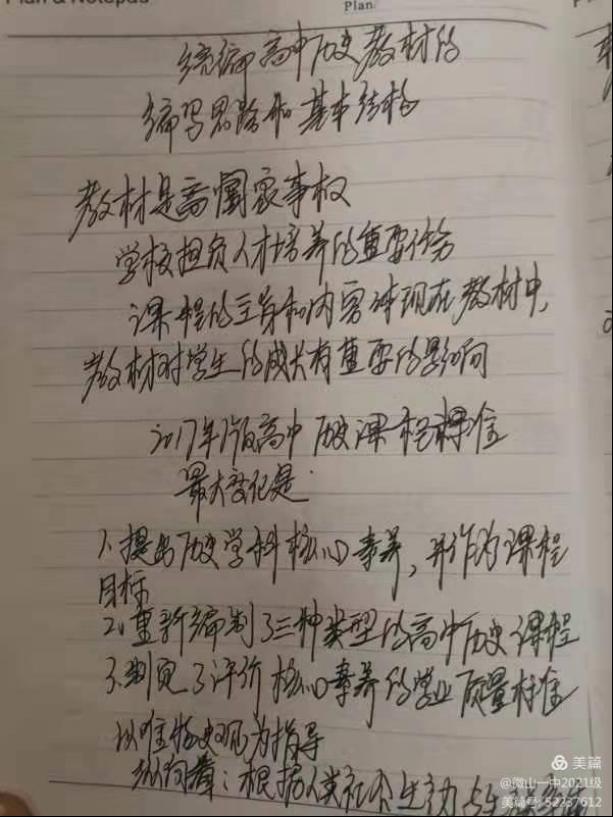 Plan & Notepad
Plan
统编高中历史教材的
编写思路和基本结构
教材是高国家事权
学校担负人才培养的重要任务
课程的主旨和内容体现在教材中,
教材对学生的成长有重要的影响
2017年版高中历史课程标准
最大变化是:
1.提出历史学科核心素养,并作为课程
目标
2.重新编制了三种类型的高中历史课程
3.制定了评价核心素养的学业质量标准
以唯物史观为指导
纵向着:根据人类社会生活与生
美篇
@微山一中2021级
美篇号: 52237612